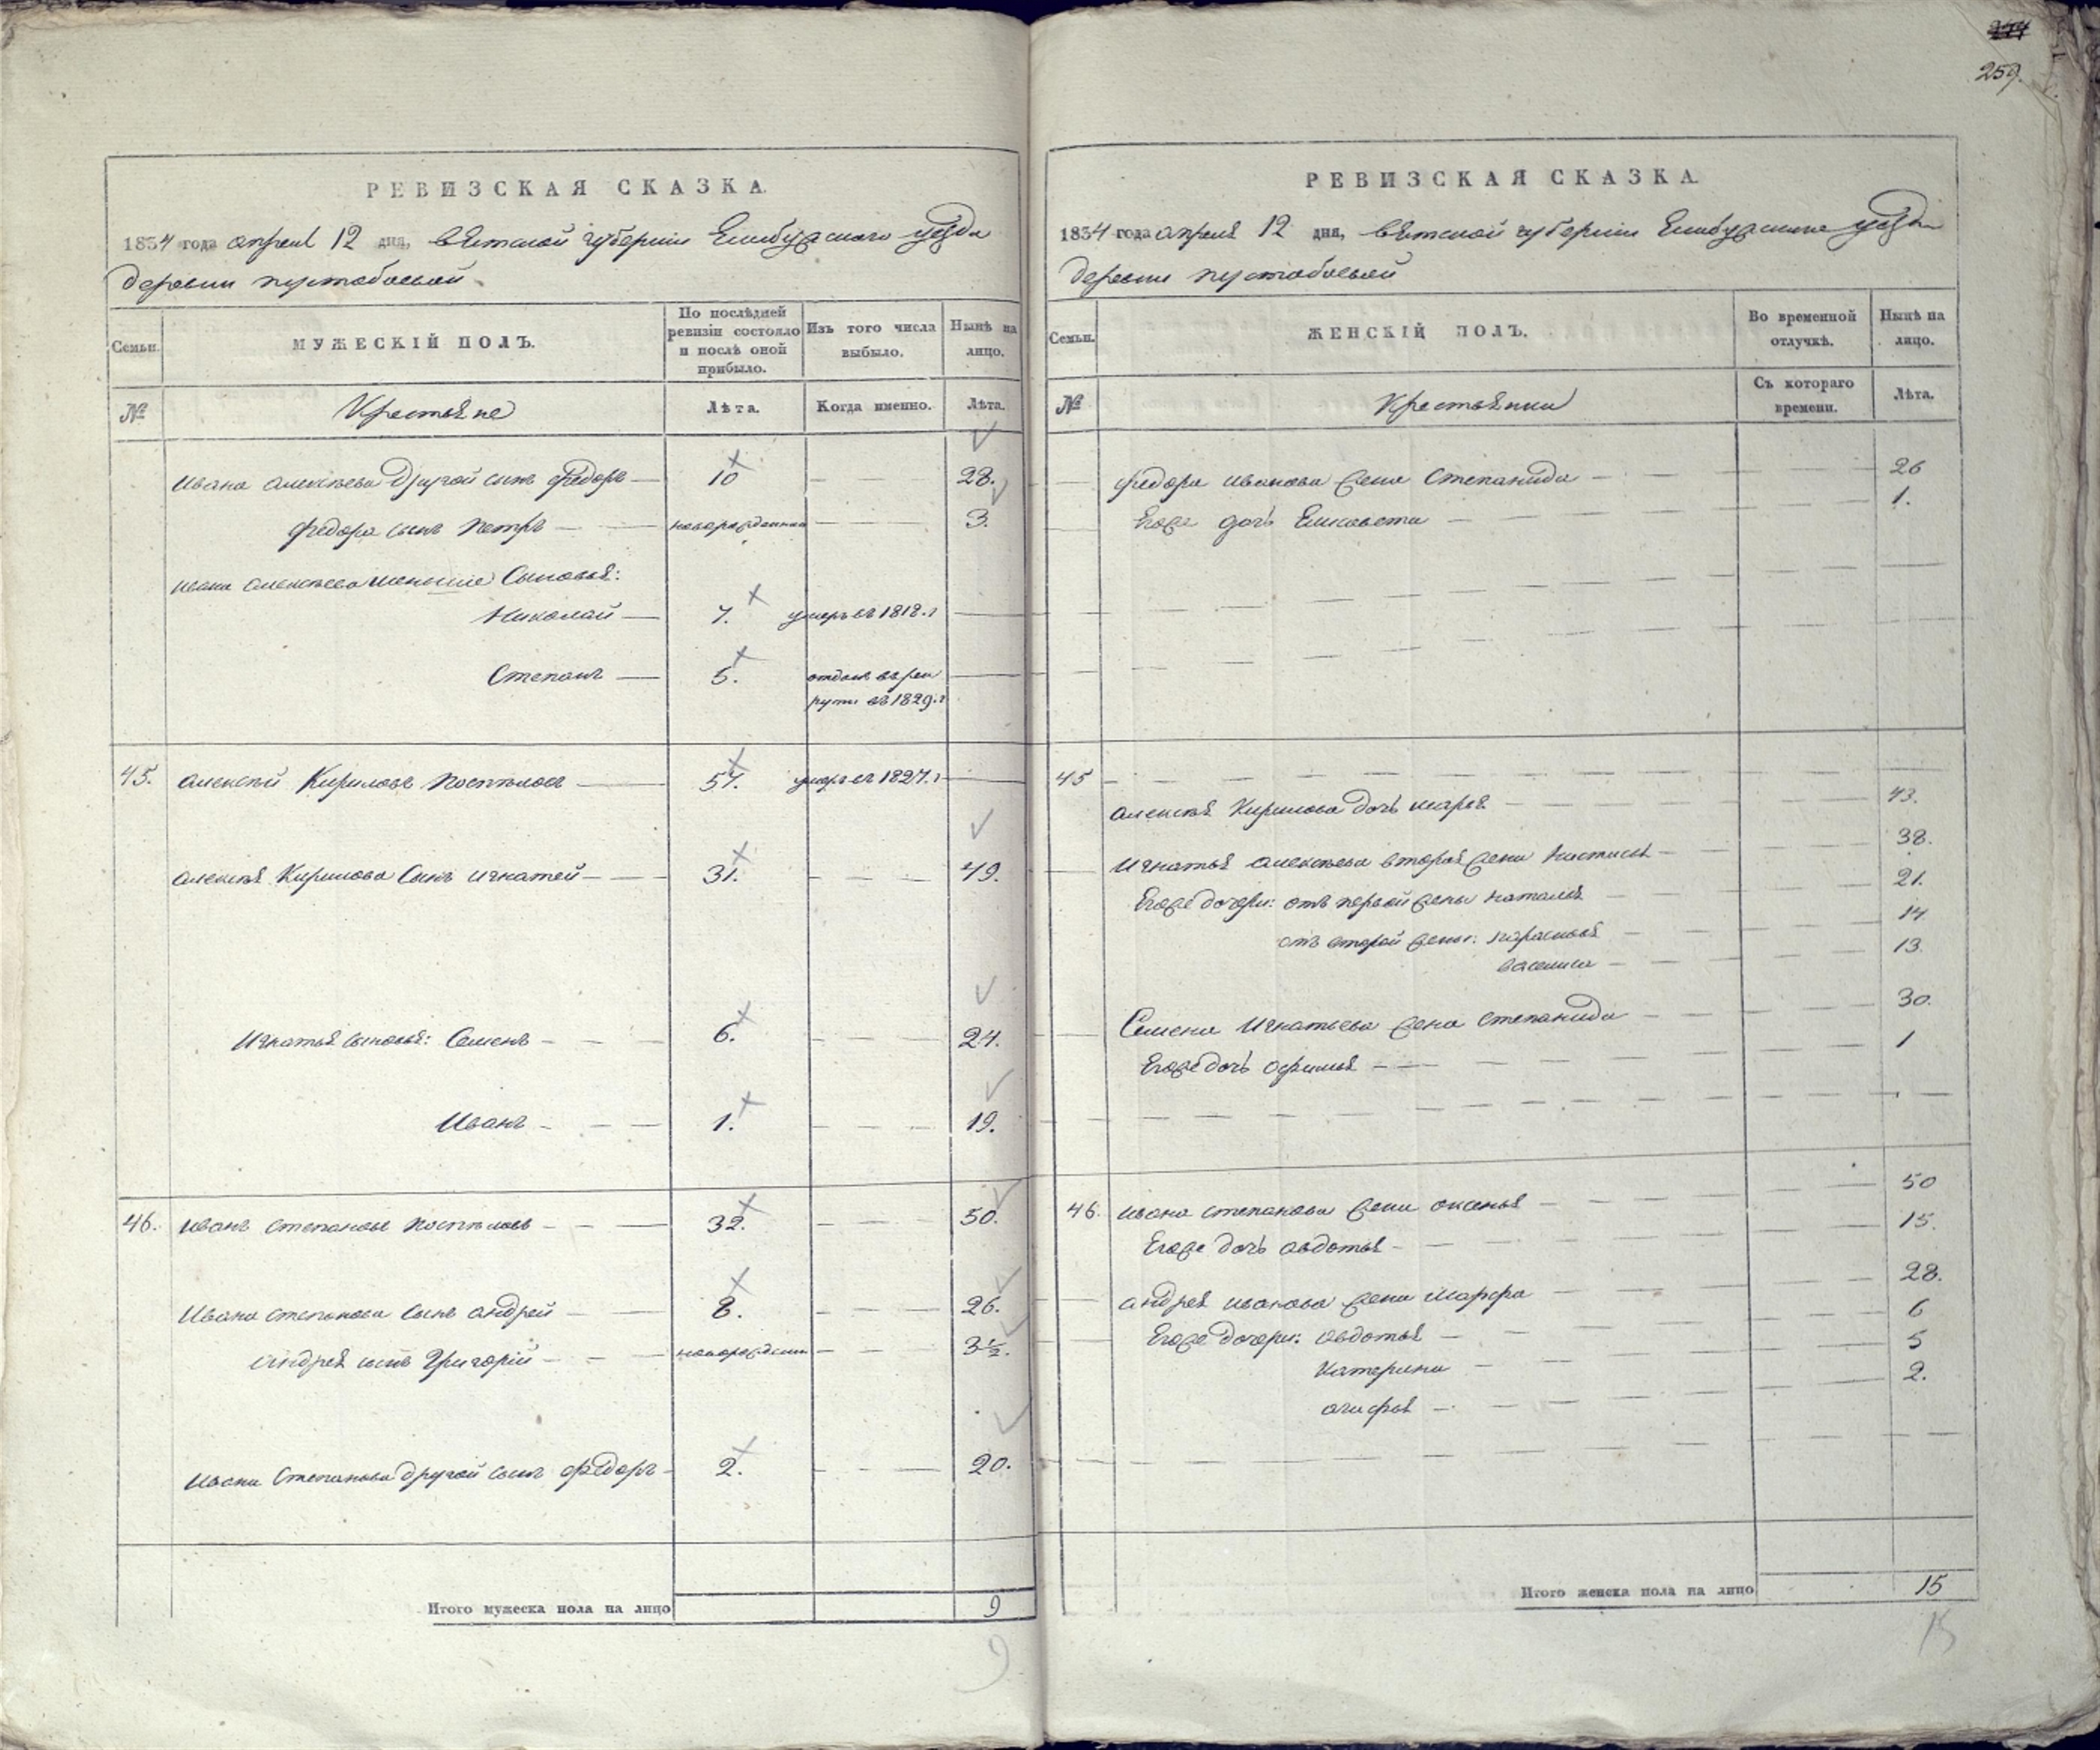 277
259.
РЕВИЗСКАЯ СКАЗКА.
1834 года апреля 12 дня, Вятской губернии Елабужскаго уезда
деревни пустобаевой
Семьи.
МУЖЕСКІЙ ПОЛЪ.
По послѣдней ревизіи состояло и послѣ оной прибыло.
Изъ того числа выбыло.
Нынѣ на лицо.
№
Крестьяне
Лѣта.
Когда именно.
Лѣта.
Ивана алексѣева Другой сынъ Федоръ — 10 — — 28.
Федора сынъ Петръ — новорожденной — 3.
Ивана алексѣева меньшие Сыновья:
Николай — 7. умеръ въ 1818.г —
Степанъ — 5. отданъ в рек
руты въ 1829.г —
45. алексѣй Кириловъ поспѣловъ — 57. умеръ въ 1827.г —
алексѣя Кирилова Сынъ игнатей — 31. — — — 49.
Игнатья сыновья: Семенъ — — — 6. — — — 24.
Иванъ — — — 1. — — — 19.
46. иванъ степановъ поспѣловъ — — — 32. — — — 50.
Ивана степанова сынъ андрей — — 8. — — — 26.
андрея сынъ Григорій — — — новорожден — — — 3½.
Ивана Степанова другой сынъ Федоръ — 2. — — — 20.
Итого мужеска пола на лицо 9
9
РЕВИЗСКАЯ СКАЗКА.
1834 года апреля 12 дня, вятской губернии Елабужскаго уезда
деревни пустобаевой
Семьи.
ЖЕНСКІЙ ПОЛЪ.
Во временной отлучкѣ.
Нынѣ на лицо.
№
Крестьянки
Съ котораго времени.
Лѣта.
Федора иванова жена Степанида — 26
Егоже дочь Елисавета — 1.
45
алексѣя Кирилова дочь марья — 43.
Игнатья алексѣева вторая жена настасья — 38.
Егоже дочери: отъ первой жены наталья — 21.
отъ второй жены: парасковья — 14
василиса — 13.
Семена Игнатьева жена степанида — 30.
Егоже дочь офимья — 1
46. ивана степанова жена оксенья — 50
Егоже дочь авдотья — 15.
андрея иванова жена Марфа — 28.
Егоже дочери: авдотья — 6
Катерина — 5
агафья — 2.
Итого женска пола на лицо 15
15